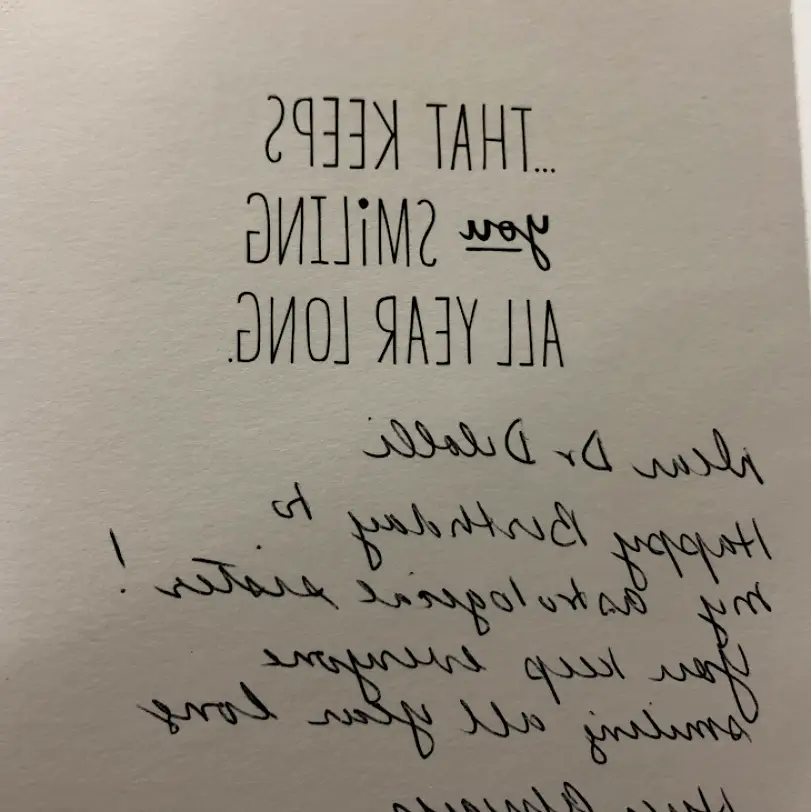 ...THAT KEEPS
you SMiLING
ALL YEAR LONG.
Dear Dr Dilolli
Happy Birthday to
my astrological sister!
You keep everyone
smiling all year long